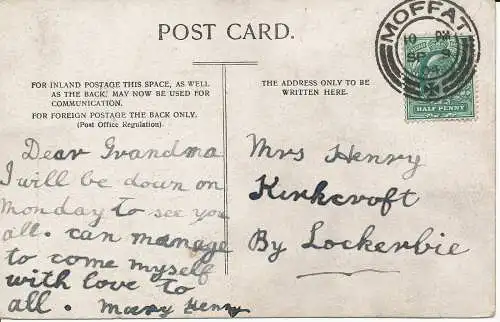 POST CARD.
FOR INLAND POSTAGE THIS SPACE, AS WELL
AS THE BACK, MAY NOW BE USED FOR
COMMUNICATION.
FOR FOREIGN POSTAGE THE BACK ONLY.
(Post Office Regulation).
THE ADDRESS ONLY TO BE
WRITTEN HERE.
MOFFAT
HALF PENNY
Dear Grandma
I will be down on
Monday to see you
all. can manage
to come myself
with love to
all. Mary Henry
Mrs Henry
Kirkcroft
By Lockerbie